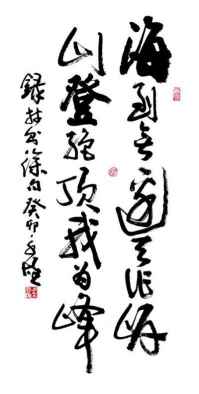 海到无边天作岸
山登绝顶我为峰
录林公
癸卯